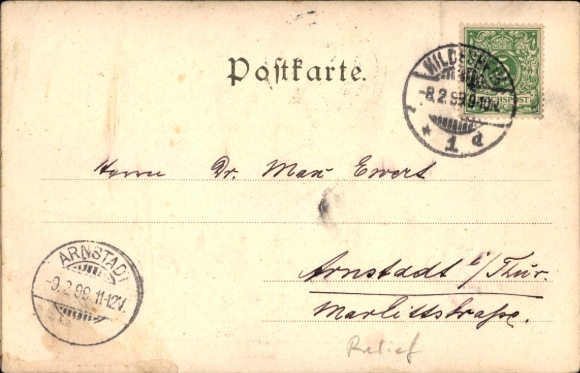 Postkarte.
HILDESHEIM
-8.2.99.9-10V.
* 1 d
REICHSPOST
Herrn Dr. Max Ewert
Arnstadt i/Thür.
Marlittstraße.
ARNSTADT
-9.2.99.11-12V.
Relief